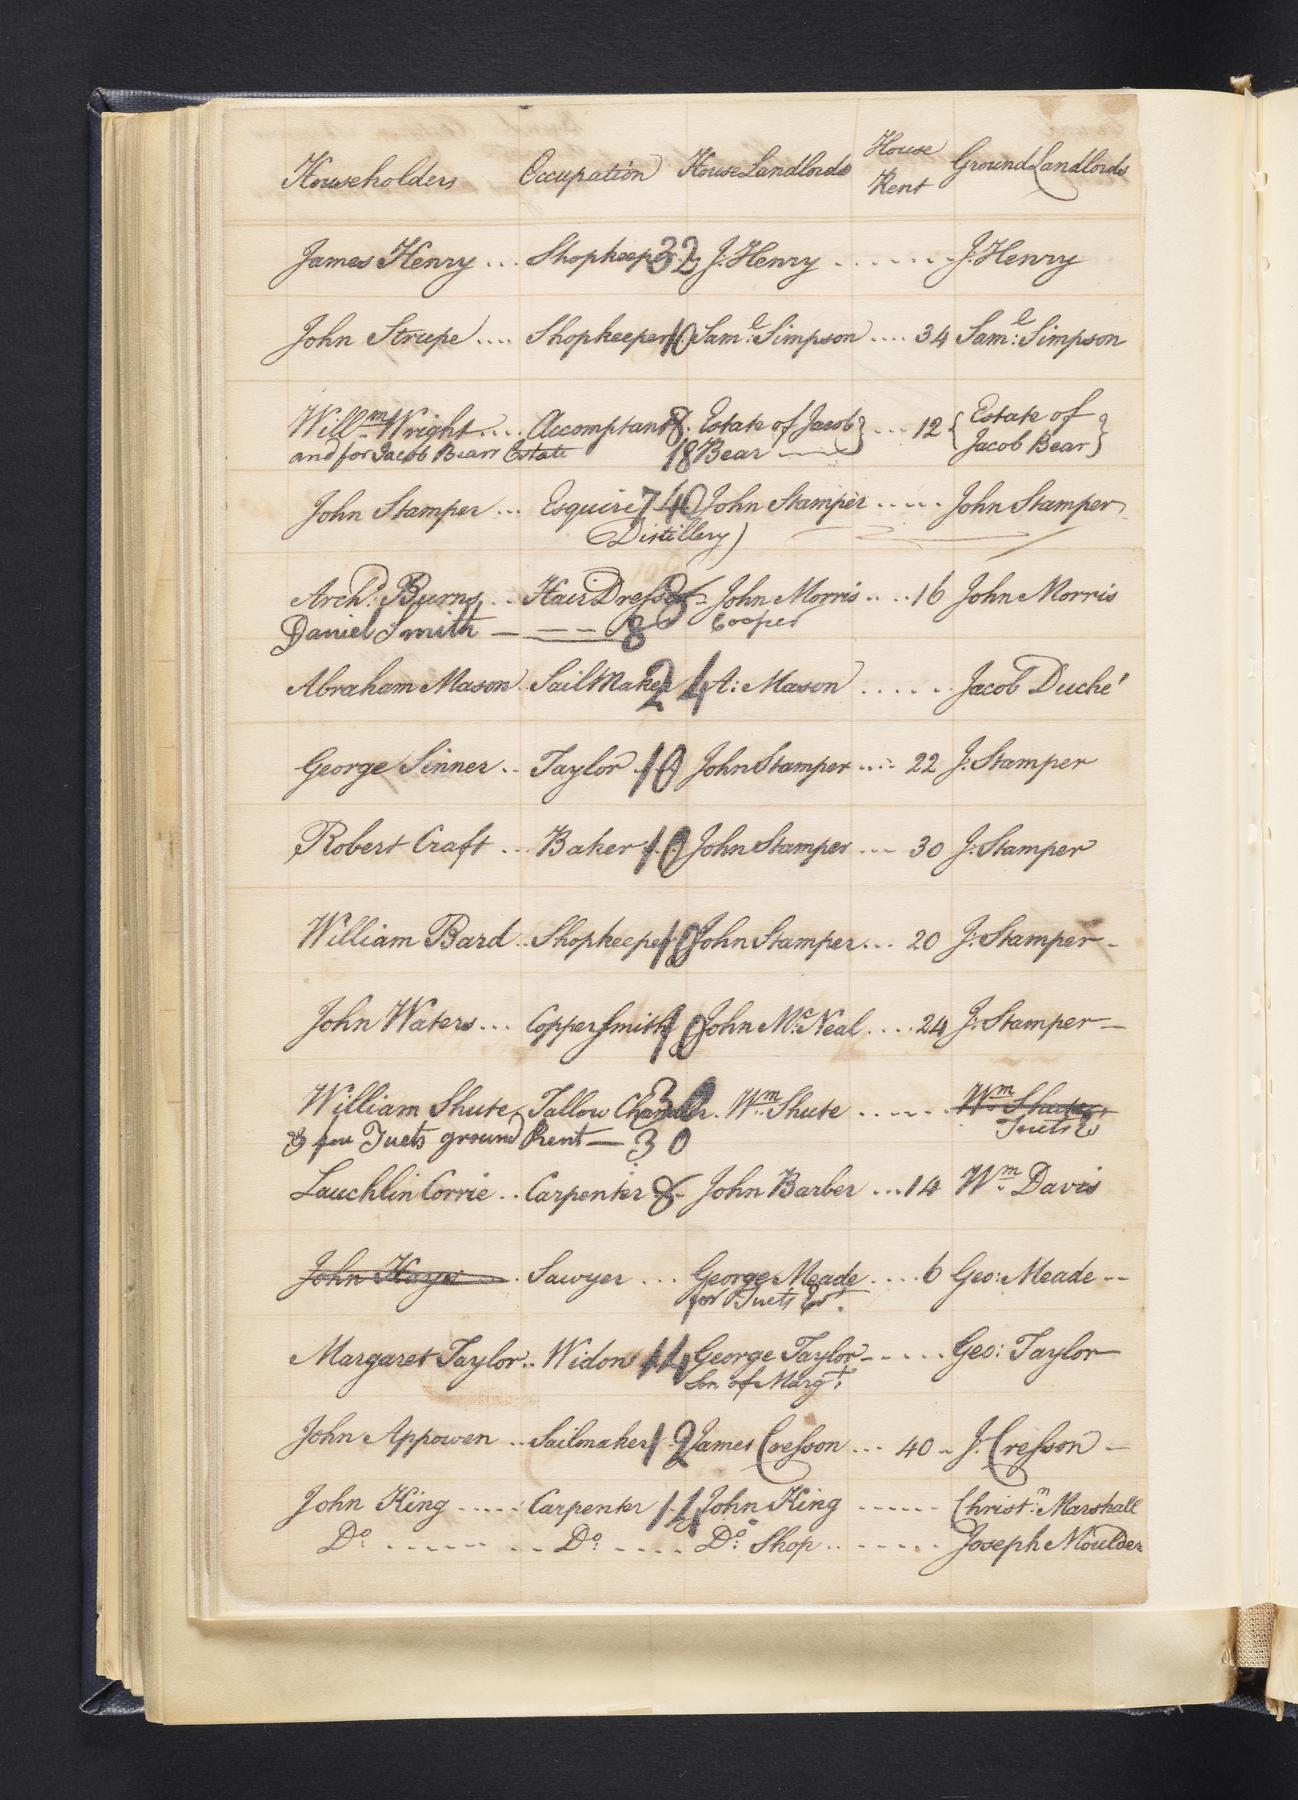 Householders Occupation House Landlords House Rent Ground Landlords
James Henry ... Shopkeepr 32 J. Henry ....... J. Henry
John Strupe .... Shopkeeper 10 Saml. Simpson .... 34 Saml: Simpson
Willm. Wright .... Accomptant 8. Estate of Jacob } ... 12 { Estate of
and for Jacob Bears Estate 18 Bear —— Jacob Bear }
John Stamper ... Esquire 740 John Stamper ..... John Stamper
Distillery)
Archd. Burns ... Hair Dresser 8 John Morris .... 16 John Morris
Daniel Smith — — — — 8 Cooper
Abraham Mason. SailMaker 24 A: Mason ...... Jacob Duché
George Sinner .. Taylor 10 John Stamper ..... 22 J: Stamper
Robert Craft ... Baker 10 John Stamper ... 30 J. Stamper
William Bard .. Shopkeeper 10 John Stamper ... 20 J. Stamper -
John Waters ... CopperSmith 10 John Mc.Neal .... 24 J. Stamper —
William Shute Tallow Chandler. 30 Wm. Shute ...... Wm Shute
& for Tuets ground Rent — 30 Tuets Et
Lauchlin Corrie .. Carpenter 8 John Barber ... 14 Wm. Davis
John Hays . Sawyer ... George Meade .... 6 Geo: Meade --
for Tuets Et.
Margaret Taylor .. Widow 14 George Taylor ...... Geo: Taylor
Son of Margt.
John Appowen .. Sailmaker 12 James Cresson ... 40 .. J. Cresson —
John King ..... Carpenter 14 John King ...... Christn. Marshall
Do. ....... .. Do: .... Do: Shop ....... Joseph Moulder